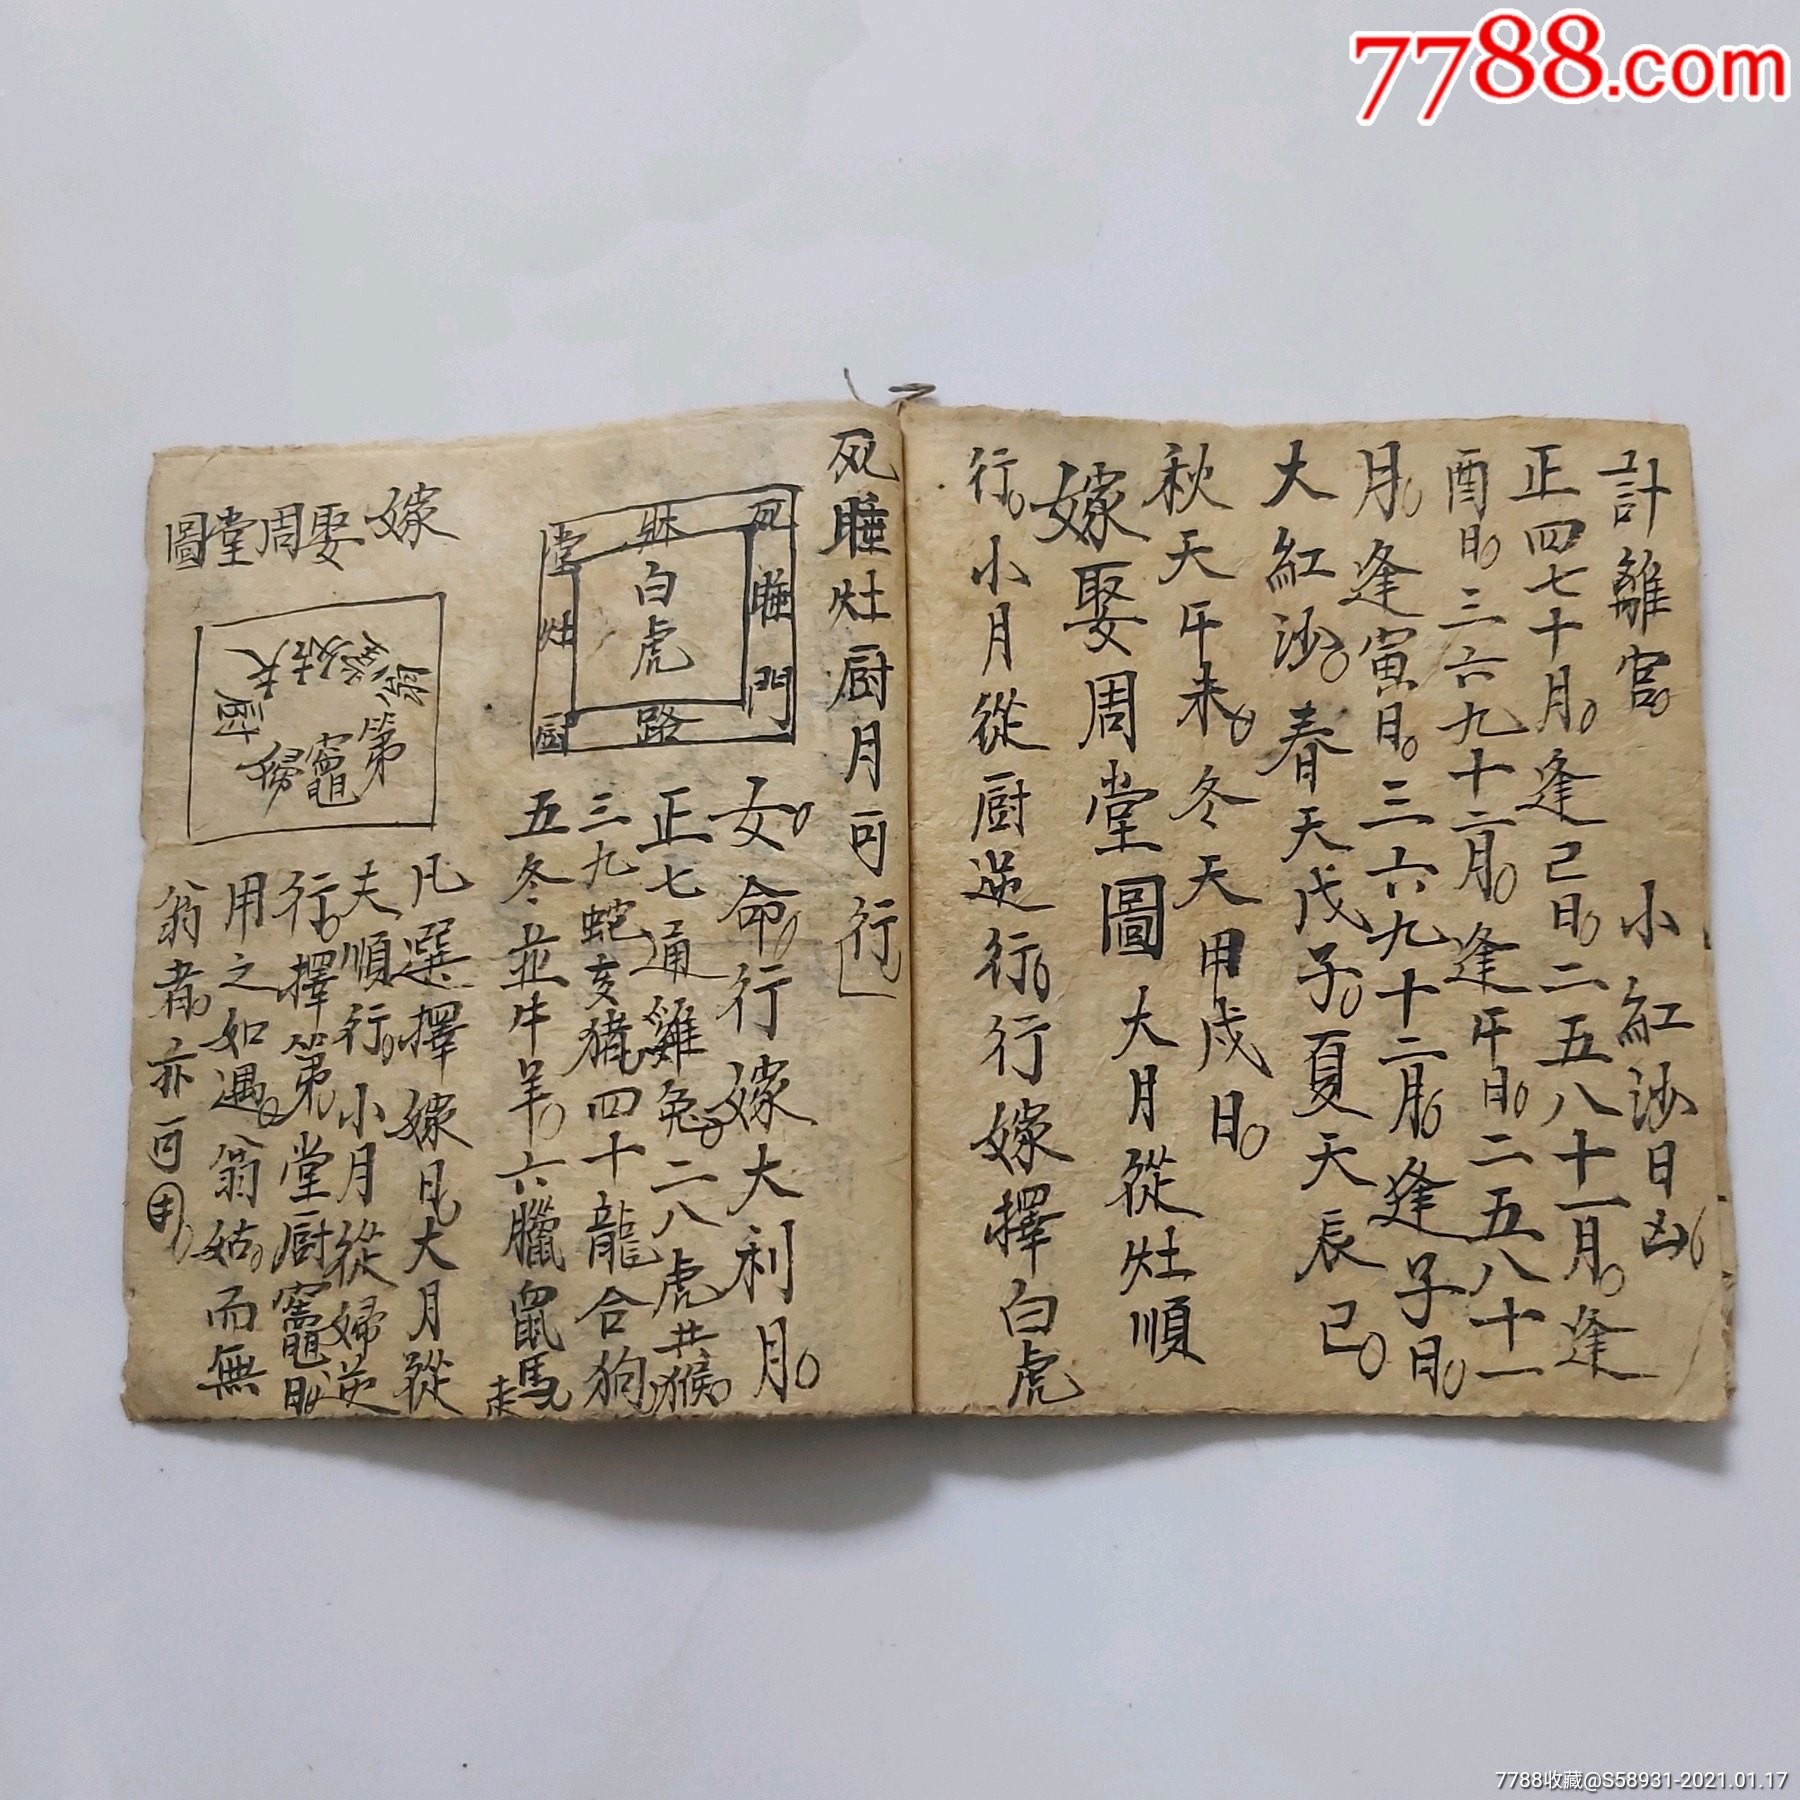 7788.com
計離宮 小紅沙日凶
正四七十月逢己日二五八十一月逢
酉日三六九十二月逢午日二五八十一
月逢寅日三六九十二月逢子日
大紅沙春天戊子夏天辰己
秋天午未冬天甲戌日
嫁娶周堂圖 大月從灶順
行小月從厨逆行行嫁擇白虎
死睡灶厨月可行
死 睡 門
床
白虎
路
堂 灶 厨
女命行嫁大利月
正七通雞兔二八虎共猴
三九蛇亥猪四十龍合狗
五冬並牛羊六臘鼠馬走
嫁娶周堂圖
夫 姑 翁 第 竈 婦 厨
凡選擇嫁月凡大月從
夫順行小月從婦逆
行擇第堂厨竈日
用之如遇翁姑而無
翁者亦可用
7788收藏@S58931-2021.01.17